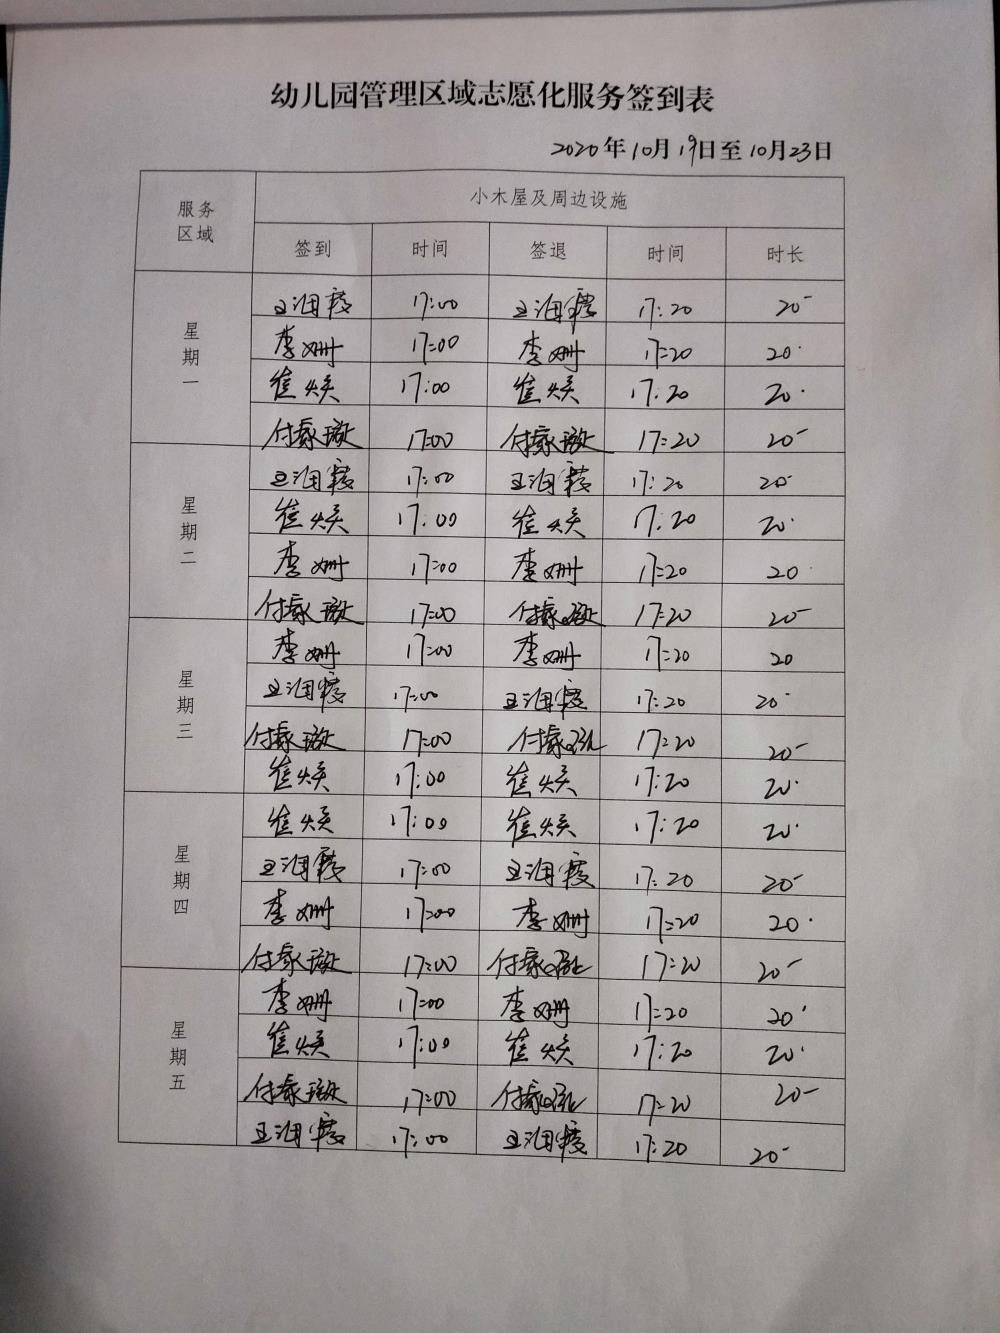 幼儿园管理区域志愿化服务签到表
2020年10月19日至10月23日
服务区域 小木屋及周边设施
签到 时间 签退 时间 时长
星期一
王润霞 17:00 王润霞 17:20 20'
李姗 17:00 李姗 17:20 20'
崔焕 17:00 崔焕 17:20 20'
付家璇 17:00 付家璇 17:20 20'
星期二
王润霞 17:00 王润霞 17:20 20'
崔焕 17:00 崔焕 17:20 20'
李姗 17:00 李姗 17:20 20'
付家璇 17:00 付家璇 17:20 20'
星期三
李姗 17:00 李姗 17:20 20
王润霞 17:00 王润霞 17:20 20'
付家璇 17:00 付家璇 17:20 20'
崔焕 17:00 崔焕 17:20 20'
星期四
崔焕 17:00 崔焕 17:20 20'
王润霞 17:00 王润霞 17:20 20'
李姗 17:00 李姗 17:20 20'
付家璇 17:00 付家璇 17:20 20'
星期五
李姗 17:00 李姗 17:20 20'
崔焕 17:00 崔焕 17:20 20'
付家璇 17:00 付家璇 17:20 20'
王润霞 17:00 王润霞 17:20 20'